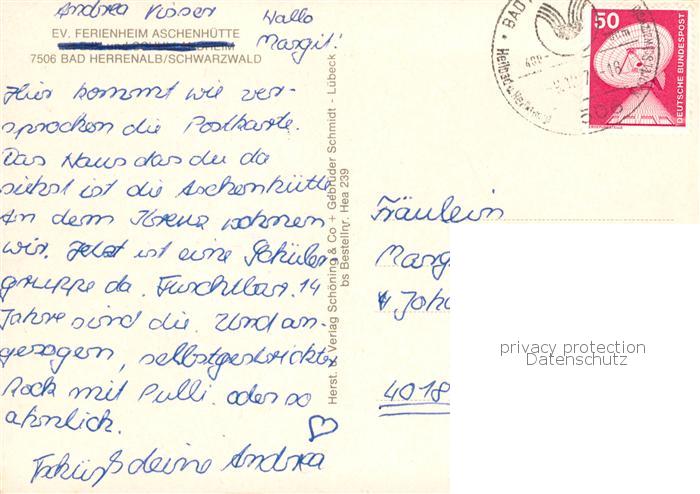 Andrea Visser
Hallo
Margit!
EV. FERIENHEIM ASCHENHÜTTE
7506 BAD HERRENALB/SCHWARZWALD
Hier kommt wie ver-
sprochen die Postkarte.
Das Haus das du da
siehst ist die Aschenhütte
An dem Kreuz wohnen
wir. Jetzt ist eine Schüler
gruppe da. Furchtbar. 14
Jahre sind die. Und an-
gezogen, selbstgestrickter
Rock mit Pulli oder so
ähnlich.
Tschüß deine Andrea
Herst. u. Verlag Schöning & Co + Gebrüder Schmidt - Lübeck
bs Bestellnr. Hea 239
BAD
50
DEUTSCHE BUNDESPOST
Fräulein
Marg
Joha
4018
privacy protection
Datenschutz